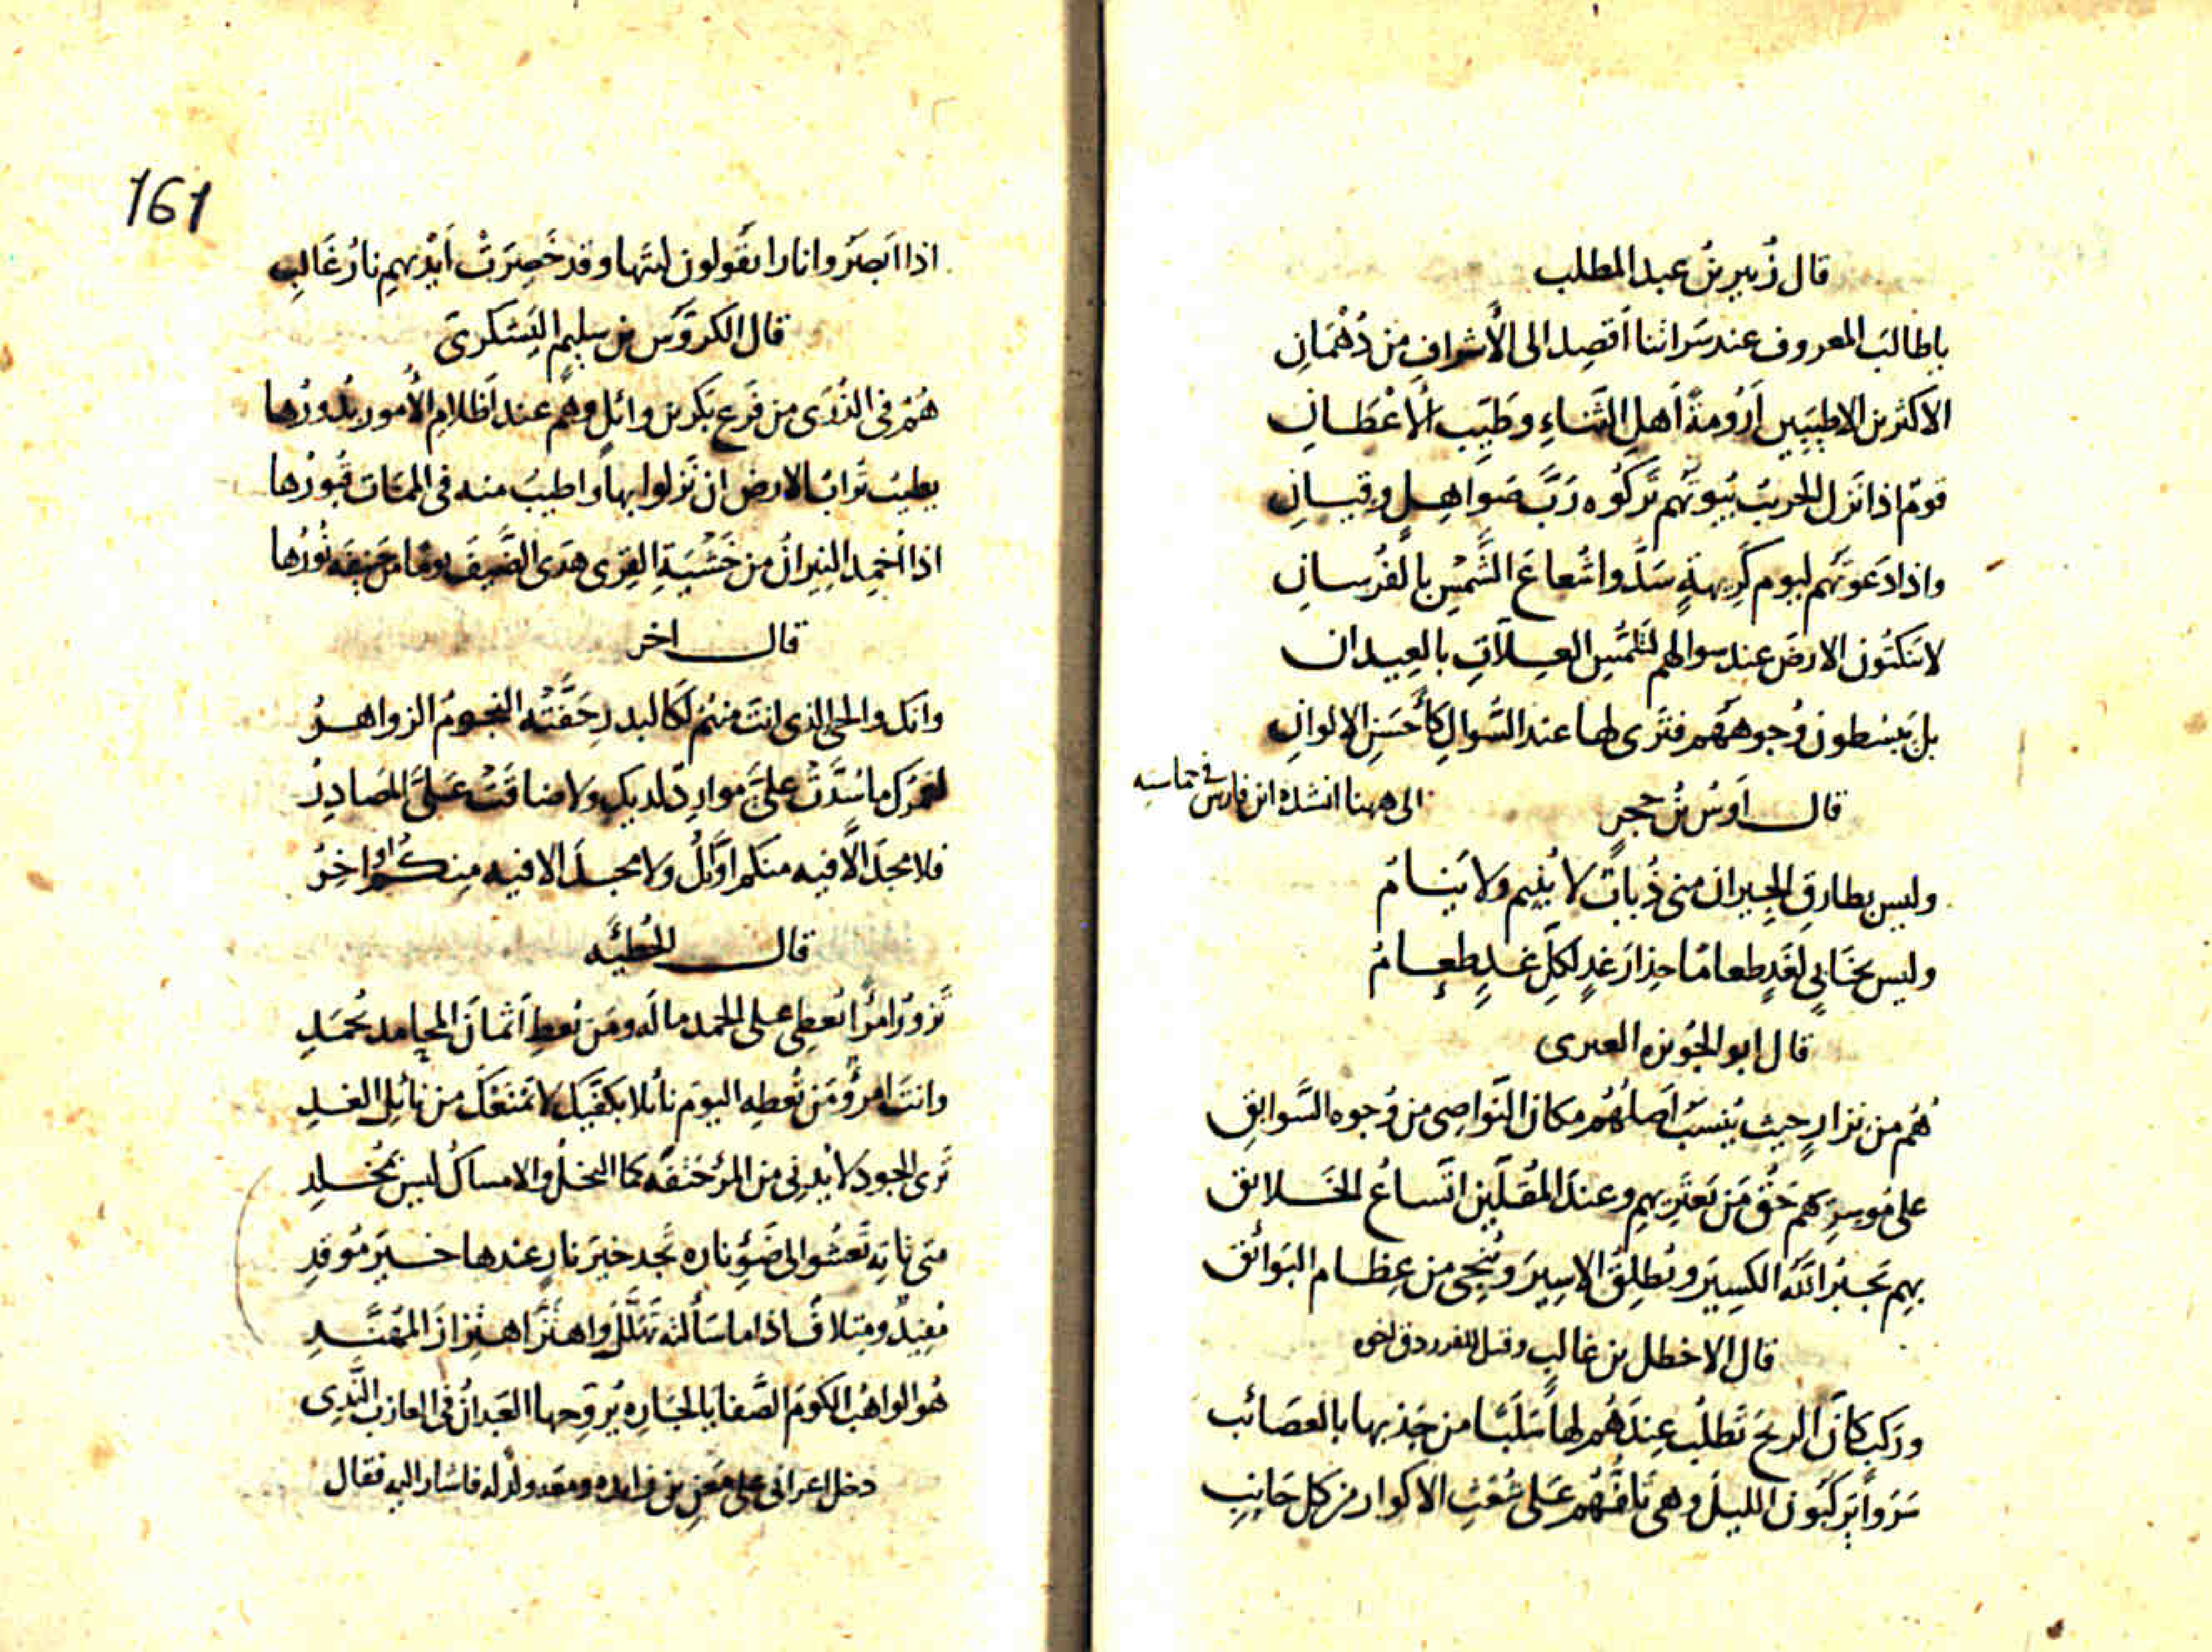 قال زُبير بنُ عبد المطلب
يا طالبَ المعروف عند سَراتنا اَقصِد الى الأشرافِ من دُهْمَانِ
الاكثرين الاطيَبِين اَرُومةً اَهلِ الثَّناءِ وطَيِّبِ الاعْطَانِ
قومٌ اذا نَزل الحريبُ بُيوتَهم تَركُوه رَبَّ صَواهِلٍ وقِيانِ
واذا دَعوتَهم ليوم كَريهةٍ سَدُّوا شُعاعَ الشَّمسِ بالفُرسانِ
لا ينكتُون الارضَ عند سوالهم لتَلمُّسِ العِلّاتِ بالعِيدانِ
بل يَبسُطون وُجوههَم فتَرى لها عند السَّوالِ كأَحسَنِ الالوانِ
قال اَوسُ بنُ حجرٍ
الى ههنا انشده ابن فارس فى حماسته
وليس بطارقِ الجِيران منى ذُبابٌ لا يُنيم ولا يَنامُ
وليس بخَابىٍ لغَدٍ طعامًا حِذارَ غدٍ لكلِّ غدٍ طعامُ
قال ابو الجُويره العبدى
هُم من نزارٍ حيث يُنسَبُ اَصلُهُم مكان النَّواصِى من وُجوه السَّوابقِ
على مُوسِرِيهم حَقُّ مَن يَعتَرِيهِم وعندَ المُقلّينِ اتِّساعُ الخَلائقِ
بهِم تَجبُرُ اللّهُ الكسِيرَ ويُطلِقُ الاسِيرَ ويُنجى من عِظام البَوائق
قال الاخطل بن غالبٍ وقيل للفرزدق اخيه
وركبٍ كاَنَّ الريحَ تَطلُب عِندَهُم لها سَلَبًا من جَذبها بالعصَائب
سَروا يَركَبُون الليلَ وهى تلفُّهُم عَلى شُعَبِ الاكوار من كل جَانِبِ
161
اذا ابصَرُوا نارا يَقُولون ليتَها وقد خَصِرَتْ اَيْدِيهِم نارُ غَالِبِ
قال الكروَّس بن سليمٍ اليَشكرىّ
هُمُ فى الذُرَى من فَرع بَكر بن وائلٍ وهُم عند اَظلامِ الأُمور بُدُورُها
يطيبُ تُرابُ الارضِ ان نَزلوا بها واطيبُ منه فى الممَات قُبورُها
اذا اُخمِد النِيرانُ من خَشْيَةِ القِرى هَدَى الضَّيفَ يومًا من حَنِيفَه نُورُها
قال اخر
وانك والحى الذى انتَ منهُم لكَالبدرِ حَفَّتْه النجومُ الزواهرُ
لعَمرُك ما سُدَّتْ علىَّ مَواردٌ لديك ولا ضاقَتْ عَلىَّ المَصَادِرُ
فلا مجدَ الّا فيه منكم اَوّلٌ ولا مجدَ الا فيه مِنكُم اَواخِرُ
قال الحُطيئَه
تَزورُ امرأً يُعطى على الحمد مالَه ومَن يُعطِ اَثمانَ المحامد يُحمَدِ
وانتَ امرؤٌ مَن تُعطِه اليومَ نائلا بكفَّيكَ لا تمنعْكَ من نائلِ الغدِ
تَرى الجود لا يُدنى من المرءِ حَتفَه كما البخلُ والامساكُ ليس بمُخلدِ
متى تاتِه تَعشُوا الى ضَوْءِ ناره تَجد خيرَ نارٍ عندها خيرَ مُوقدِ
مُفِيدٌ ومِتلافٌ اذا ما سَاَلتَه تَهَلَّلَ واهتَزَّ اهتِزازَ المُهنَّدِ
هُو الواهبُ الكُومَ الصَّفايا لجَارِه يُرَوِّحها العَبدانُ فى العازب النَّدِى
دخل اعرابى على مَعنِ بن زايده ومعه ولدٌ له فاشار اليه فقال